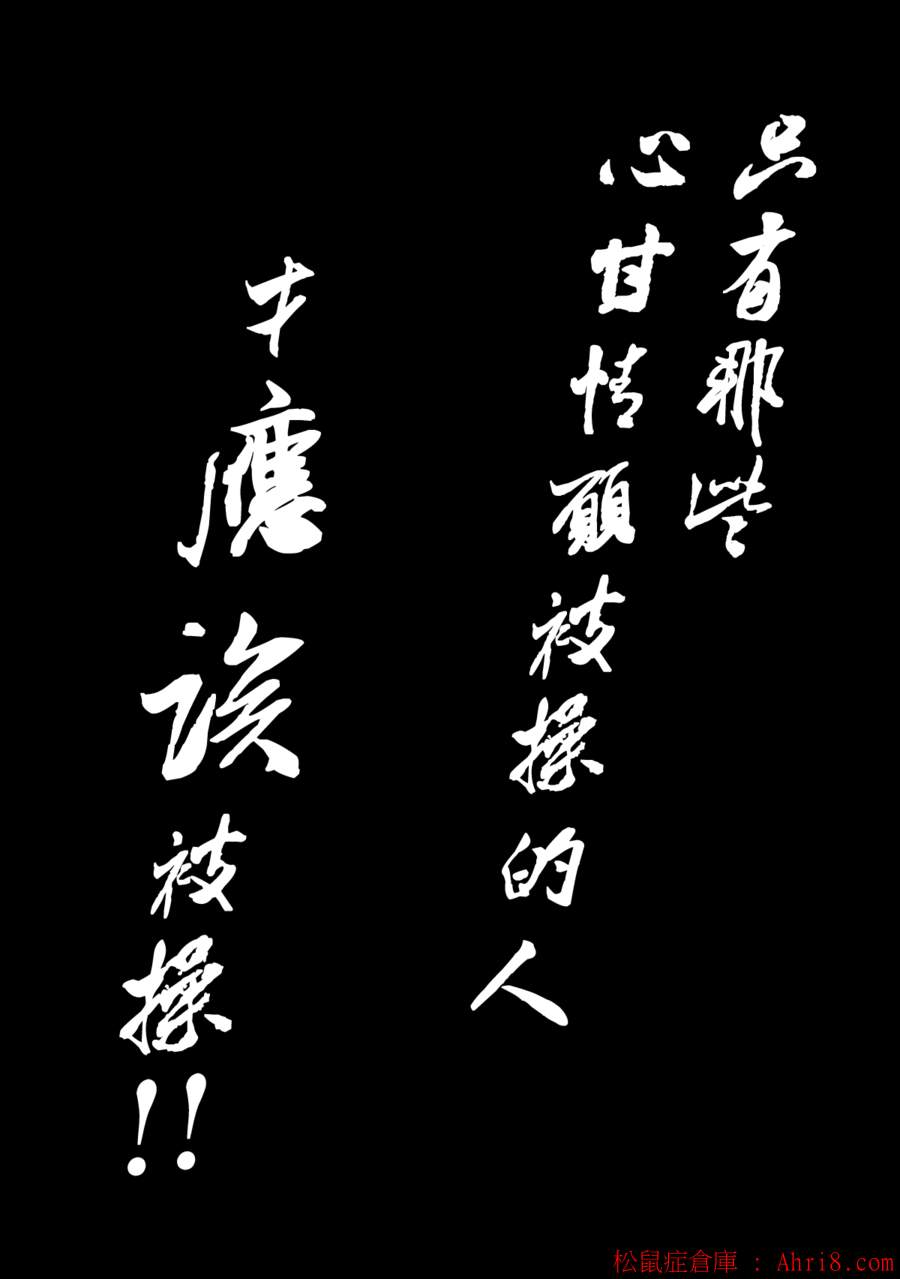 只有那些
心甘情願被操的人
才應該被操!!
松鼠症倉庫 : Ahri8.com